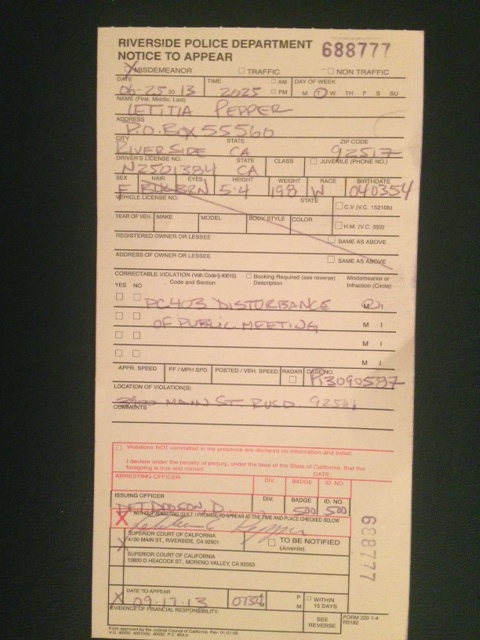 RIVERSIDE POLICE DEPARTMENT
NOTICE TO APPEAR 688777
X MISDEMEANOR □ TRAFFIC □ NON TRAFFIC
DATE TIME □ AM □ PM DAY OF WEEK
06-25 20 13 2025 M T W TH F S SU
NAME (First, Middle, Last)
LETITIA PEPPER
ADDRESS
P.O. BOX 55560
CITY STATE ZIP CODE
RIVERSIDE CA 92517
DRIVER'S LICENSE NO. STATE CLASS □ JUVENILE (PHONE NO.)
N2501384 CA
SEX HAIR EYES HEIGHT WEIGHT RACE BIRTHDATE
F BRN 5-4 198 W 040354
VEHICLE LICENSE NO. STATE □ C.V. (V.C. 15210b)
YEAR OF VEH. MAKE MODEL BODY STYLE COLOR □ H.M. (V.C. 353)
REGISTERED OWNER OR LESSEE □ SAME AS ABOVE
ADDRESS OF OWNER OR LESSEE □ SAME AS ABOVE
CORRECTABLE VIOLATION (Veh. Code § 40610) □ Booking Required (see reverse) Misdemeanor or
YES NO Code and Section Description Infraction (Circle)
□ □ PC403 DISTURBANCE M I
□ □ OF PUBLIC MEETING M I
□ □ M I
□ □ M I
APPR. SPEED PF / MPH SPD POSTED / VEH. SPEED RADAR □ CASE NO.
P13090587
LOCATION OF VIOLATION(S)
MAIN ST
COMMENTS
□ Violations NOT committed in my presence are declared on information and belief.
I declare under the penalty of perjury, under the laws of the State of California, that the
foregoing is true and correct DATE:
ARRESTING OFFICER DIV. BADGE ID. NO.
ISSUING OFFICER DIV. BADGE ID. NO.
DET DODSON D.
X WITHOUT ADMITTING GUILT, I PROMISE TO APPEAR AT THE TIME AND PLACE CHECKED BELOW
SUPERIOR COURT OF CALIFORNIA □ TO BE NOTIFIED
4100 MAIN ST., RIVERSIDE, CA 92501 (Juvenile)
SUPERIOR COURT OF CALIFORNIA
13800 HEACOCK ST., MORENO VALLEY, CA 92553
DATE TO APPEAR □ WITHIN
X 09-17-13 15 DAYS
EVIDENCE OF FINANCIAL RESPONSIBILITY: SEE REVERSE
688777